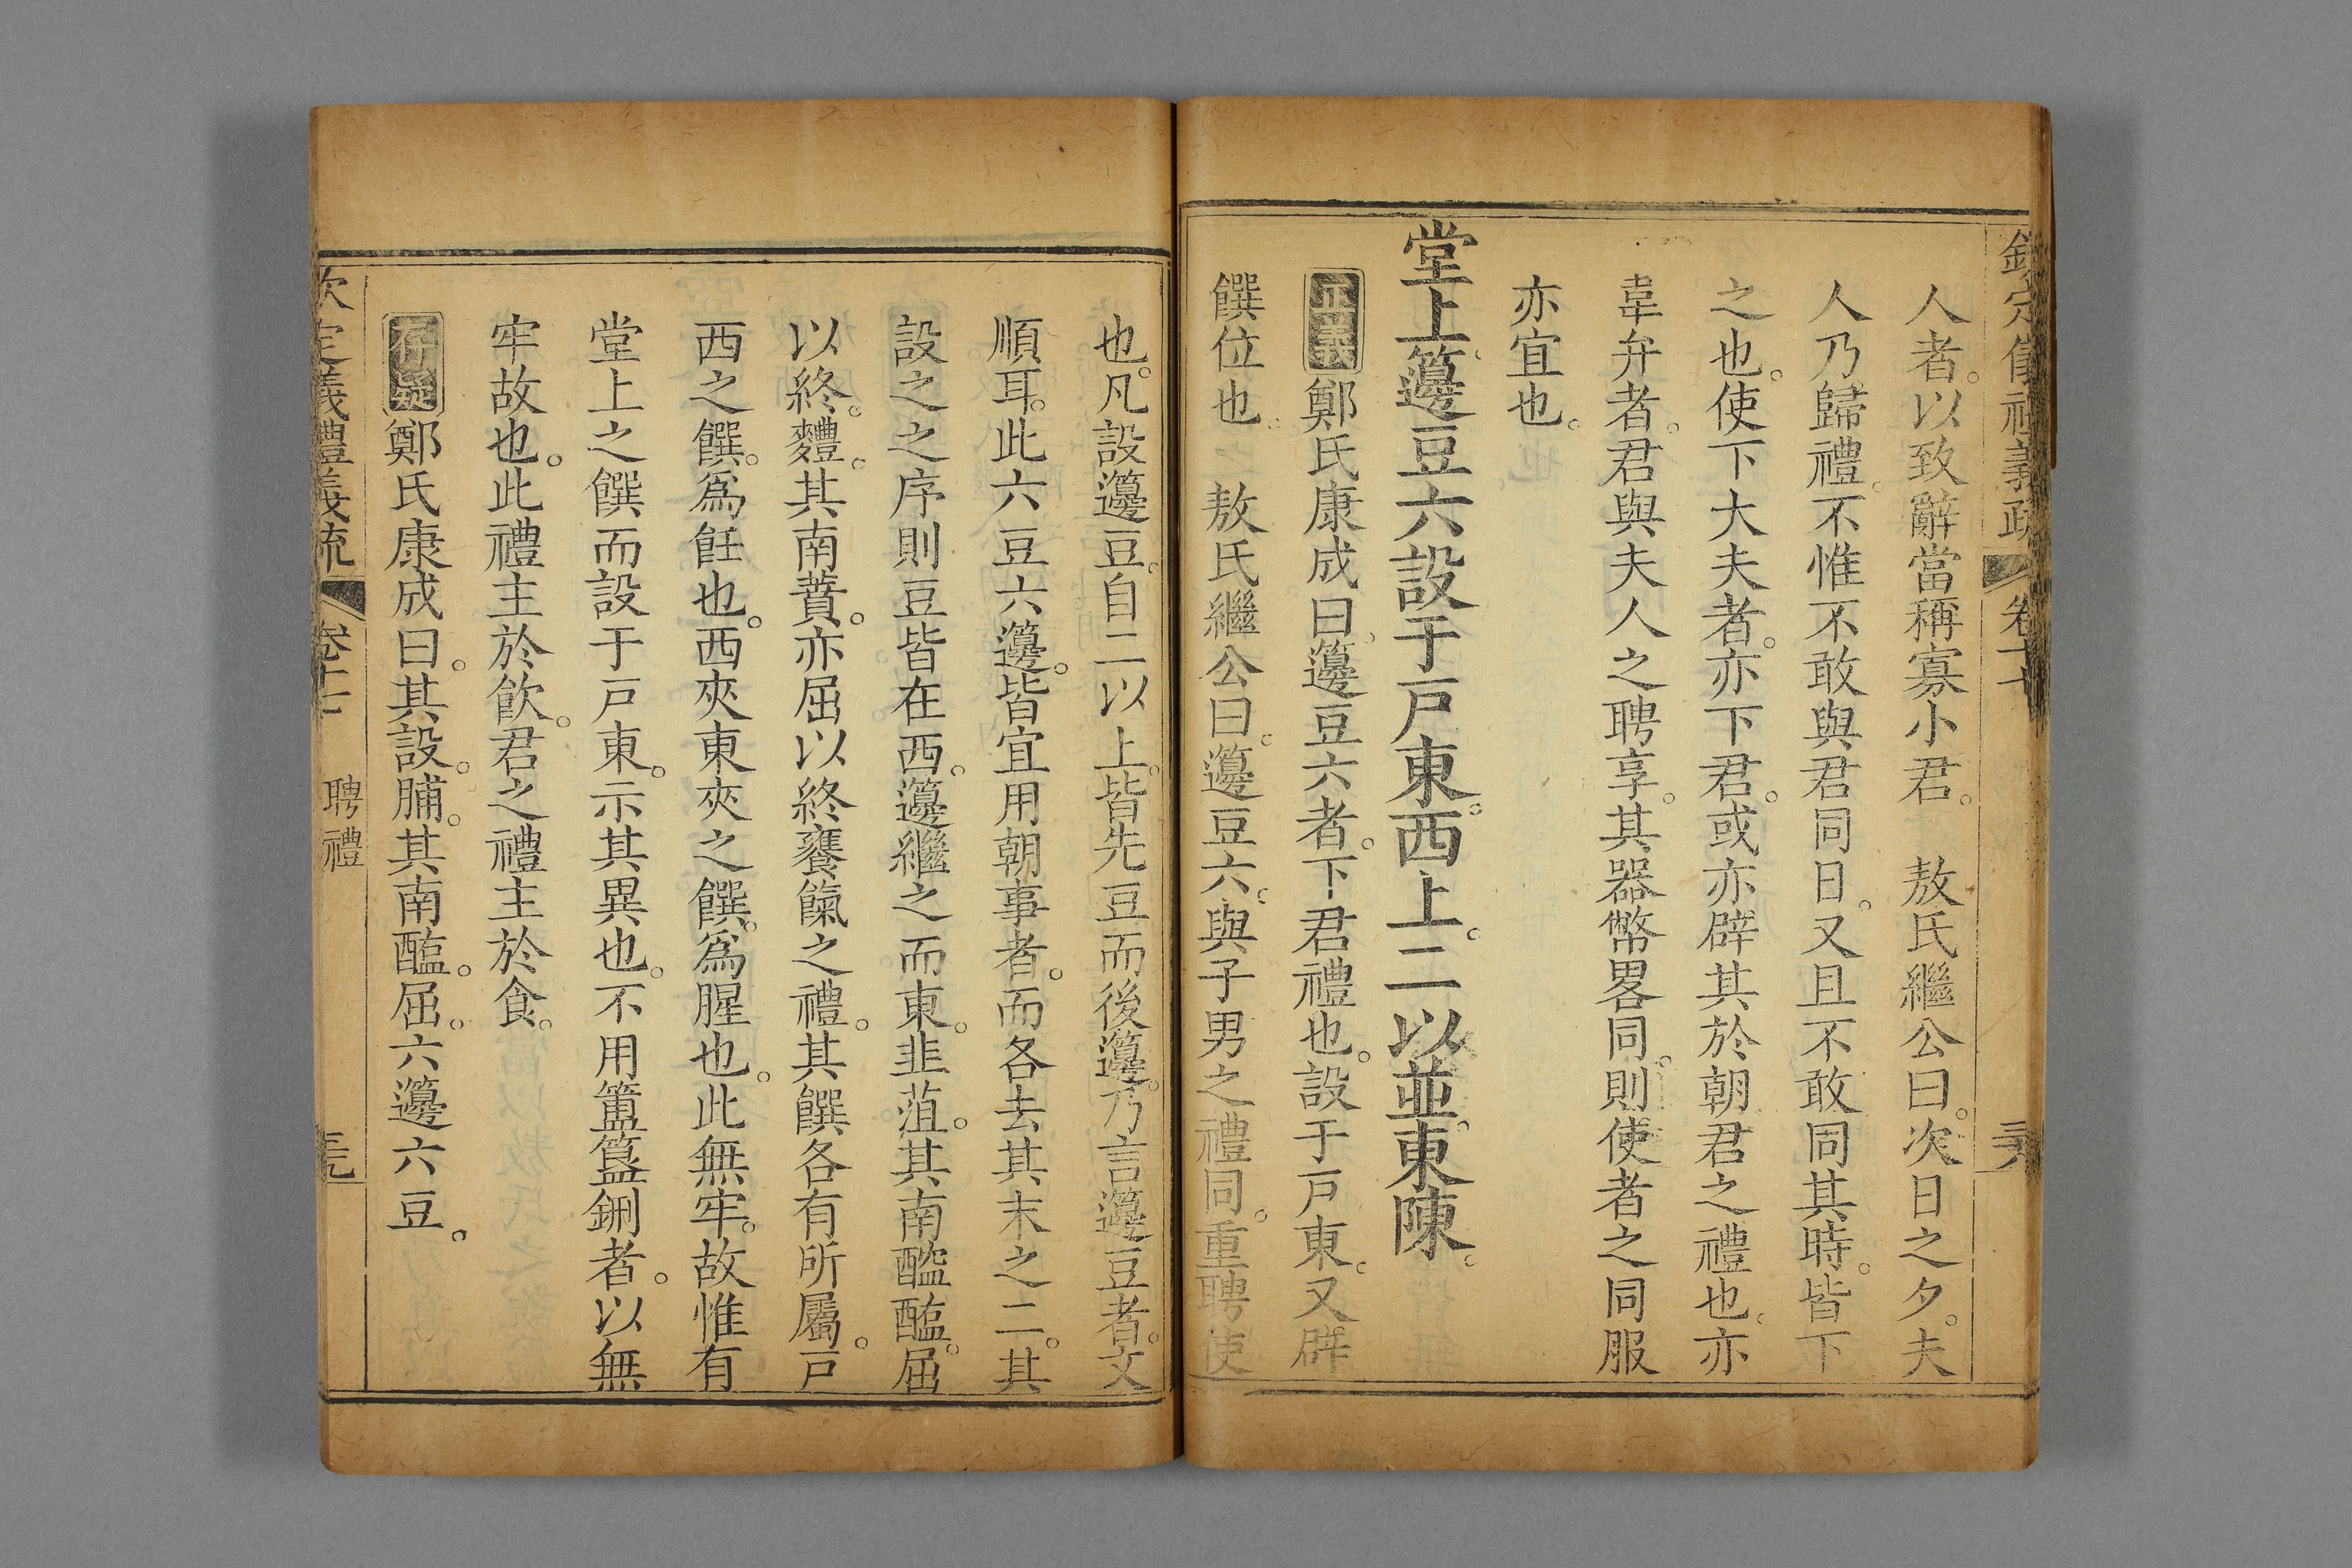 欽定儀禮義疏　卷十　
人者。以致辭當稱寡小君。　敖氏繼公曰。次日之夕。夫
人乃歸禮。不惟不敢與君同日。又且不敢同其時。皆下
之也。使下大夫者。亦下君。或亦辟其於朝君之禮也。亦
韋弁者。君與夫人之聘享。其器幣畧同。則使者之同服
亦宜也。
堂上籩豆六設于戶東。西上。二以並。東陳。
正義鄭氏康成曰。籩豆六者。下君禮也。設于戶東。又辟
饌位也。　敖氏繼公曰。籩豆六。與子男之禮同。重聘使
也。凡設籩豆。自二以上。皆先豆而後籩。乃言籩豆者。文
順耳。此六豆六籩。皆宜用朝事者。而各去其末之二。其
設之之序則豆皆在西。籩繼之而東。韭菹。其南醓醢。屈
以終。麷。其南蕡。亦屈以終饔餼之禮。其饌各有所屬。戶
西之饌。爲飪也。西夾東夾之饌。爲腥也。此無牢。故惟有
堂上之饌而設于戶東。示其異也。不用簠簋鉶者。以無
牢故也。此禮主於飲。君之禮主於食。
存疑鄭氏康成曰。其設。脯。其南醢。屈。六籩六豆。
欽定義禮義疏　卷十　聘禮